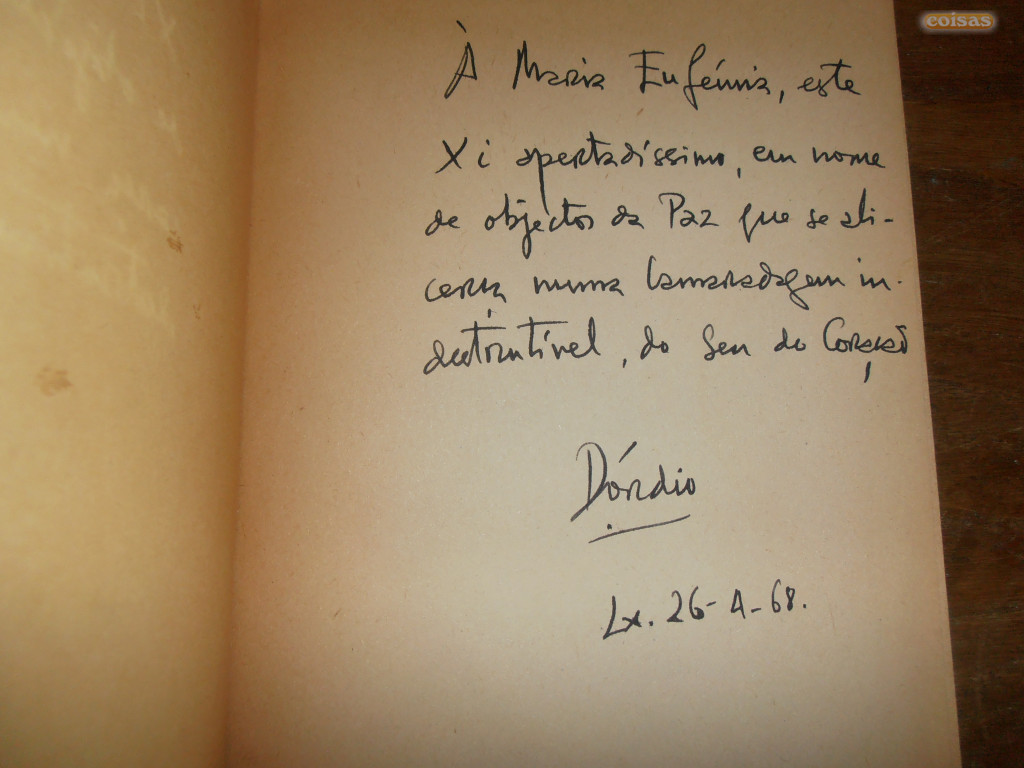 coisas
À Maria Eufémia, este
Xi apertadíssimo, em nome
de objectos da Paz que se ali-
cerça numa Camaradagem in-
destrutível, do seu do Coração
Dórdio
Lx. 26-4-68.